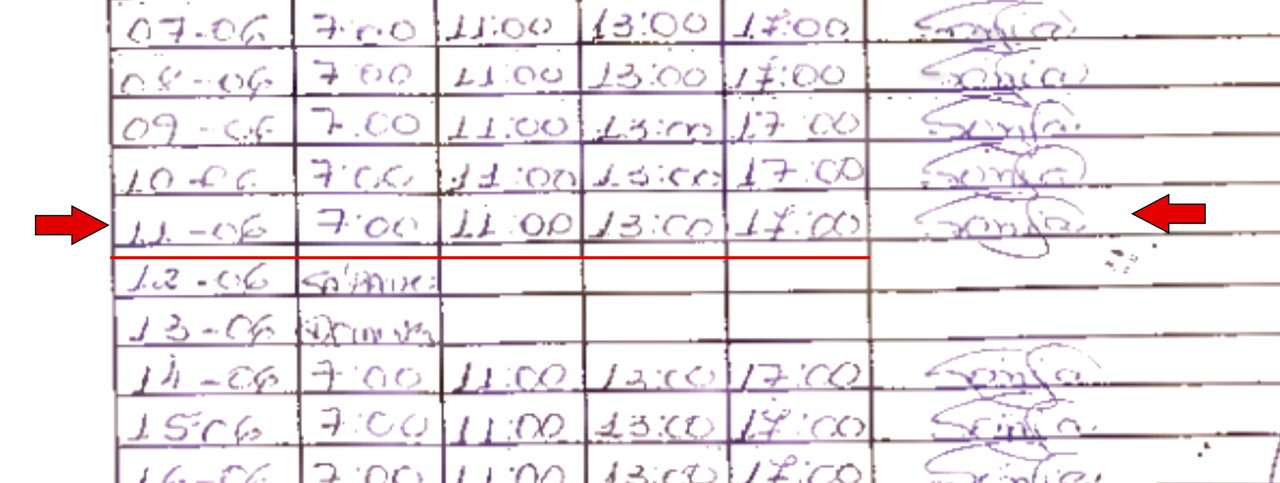 07-06 7:00 11:00 13:00 17:00 Sonia
08-06 7:00 11:00 13:00 17:00 Sonia
09-06 7:00 11:00 13:00 17:00 Sonia
10-06 7:00 11:00 13:00 17:00 Sonia
11-06 7:00 11:00 13:00 17:00 Sonia
12-06
13-06
14-06 7:00 11:00 13:00 17:00 Sonia
15-06 7:00 11:00 13:00 17:00 Sonia
16-06 7:00 11:00 13:00 17:00 Sonia